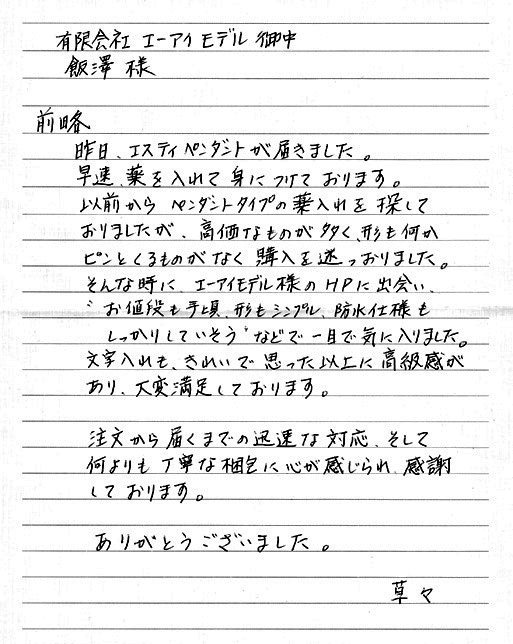 有限会社 エーアイモデル 御中
飯澤 様
前略
昨日、エスティペンダントが届きました。
早速、薬を入れて身につけております。
以前から ペンダントタイプの薬入れを 探して
おりましたが、高価なものが多く、形も何か
ピンとくるものがなく 購入を迷っおりました。
そんな時に、エーアイモデル様のHPに出会い、
"お値段も手頃、形もシンプル、防水仕様も
しっかりしていそう"などで一目で気に入りました。
文字入れも、きれいで思った以上に高級感が
あり、大変満足しております。
注文から届くまでの迅速な対応、そして
何よりも丁寧な梱包に心が感じられ、感謝
しております。
ありがとうございました。
草々